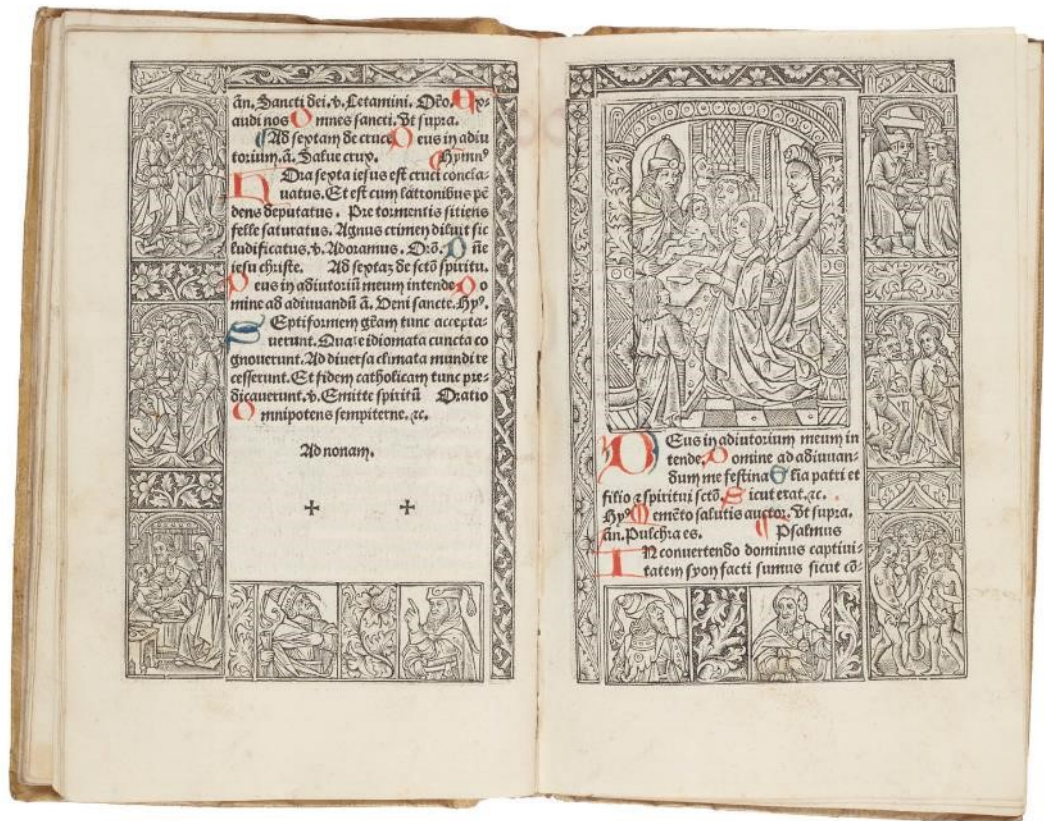 añ. Sancti dei. v̄. Letamini. Orõ. Ex-
audi nos Omnes sancti. Vt supra.
¶Ad sextam de cruce Deus in adiu
torium. ā. Salue crux. ¶Hymnꝰ
HOra sexta iesus est cruci concla-
uatus. Et est cum latronibus pē
dens deputatus. Pre tormentis sitiens
felle saturatus. Agnus crimen diluit sic
ludificatus. v̄. Adoramus. Orõ. Dñe
iesu christe. Ad sextaȝ de sctō spiritu.
Deus in adiutoriū meum intende Do
mine ad adiuuandū ā. Veni sancte. Hyꝰ.
SEptiformem grām tunc accepta-
uerunt. Quare idiomata cuncta co
gnouerunt. Ad diuersa climata mundi re
cesserunt. Et fidem catholicam tunc pre-
dicauerunt. v̄. Emitte spiritū Oratio
Omnipotens sempiterne. ⁊c.
Ad nonam.
DEus in adiutorium meum in
tende. Domine ad adiuuan-
dum me festina Glīa patri et
filio ⁊ spiritui sctō. Sicut erat. ⁊c.
Hyꝰ Memēto salutis auctor. Vt supra.
añ. Pulchra es. ¶Psalmus
IN conuertendo dominus captiui-
tatem syon facti sumus sicut cō-